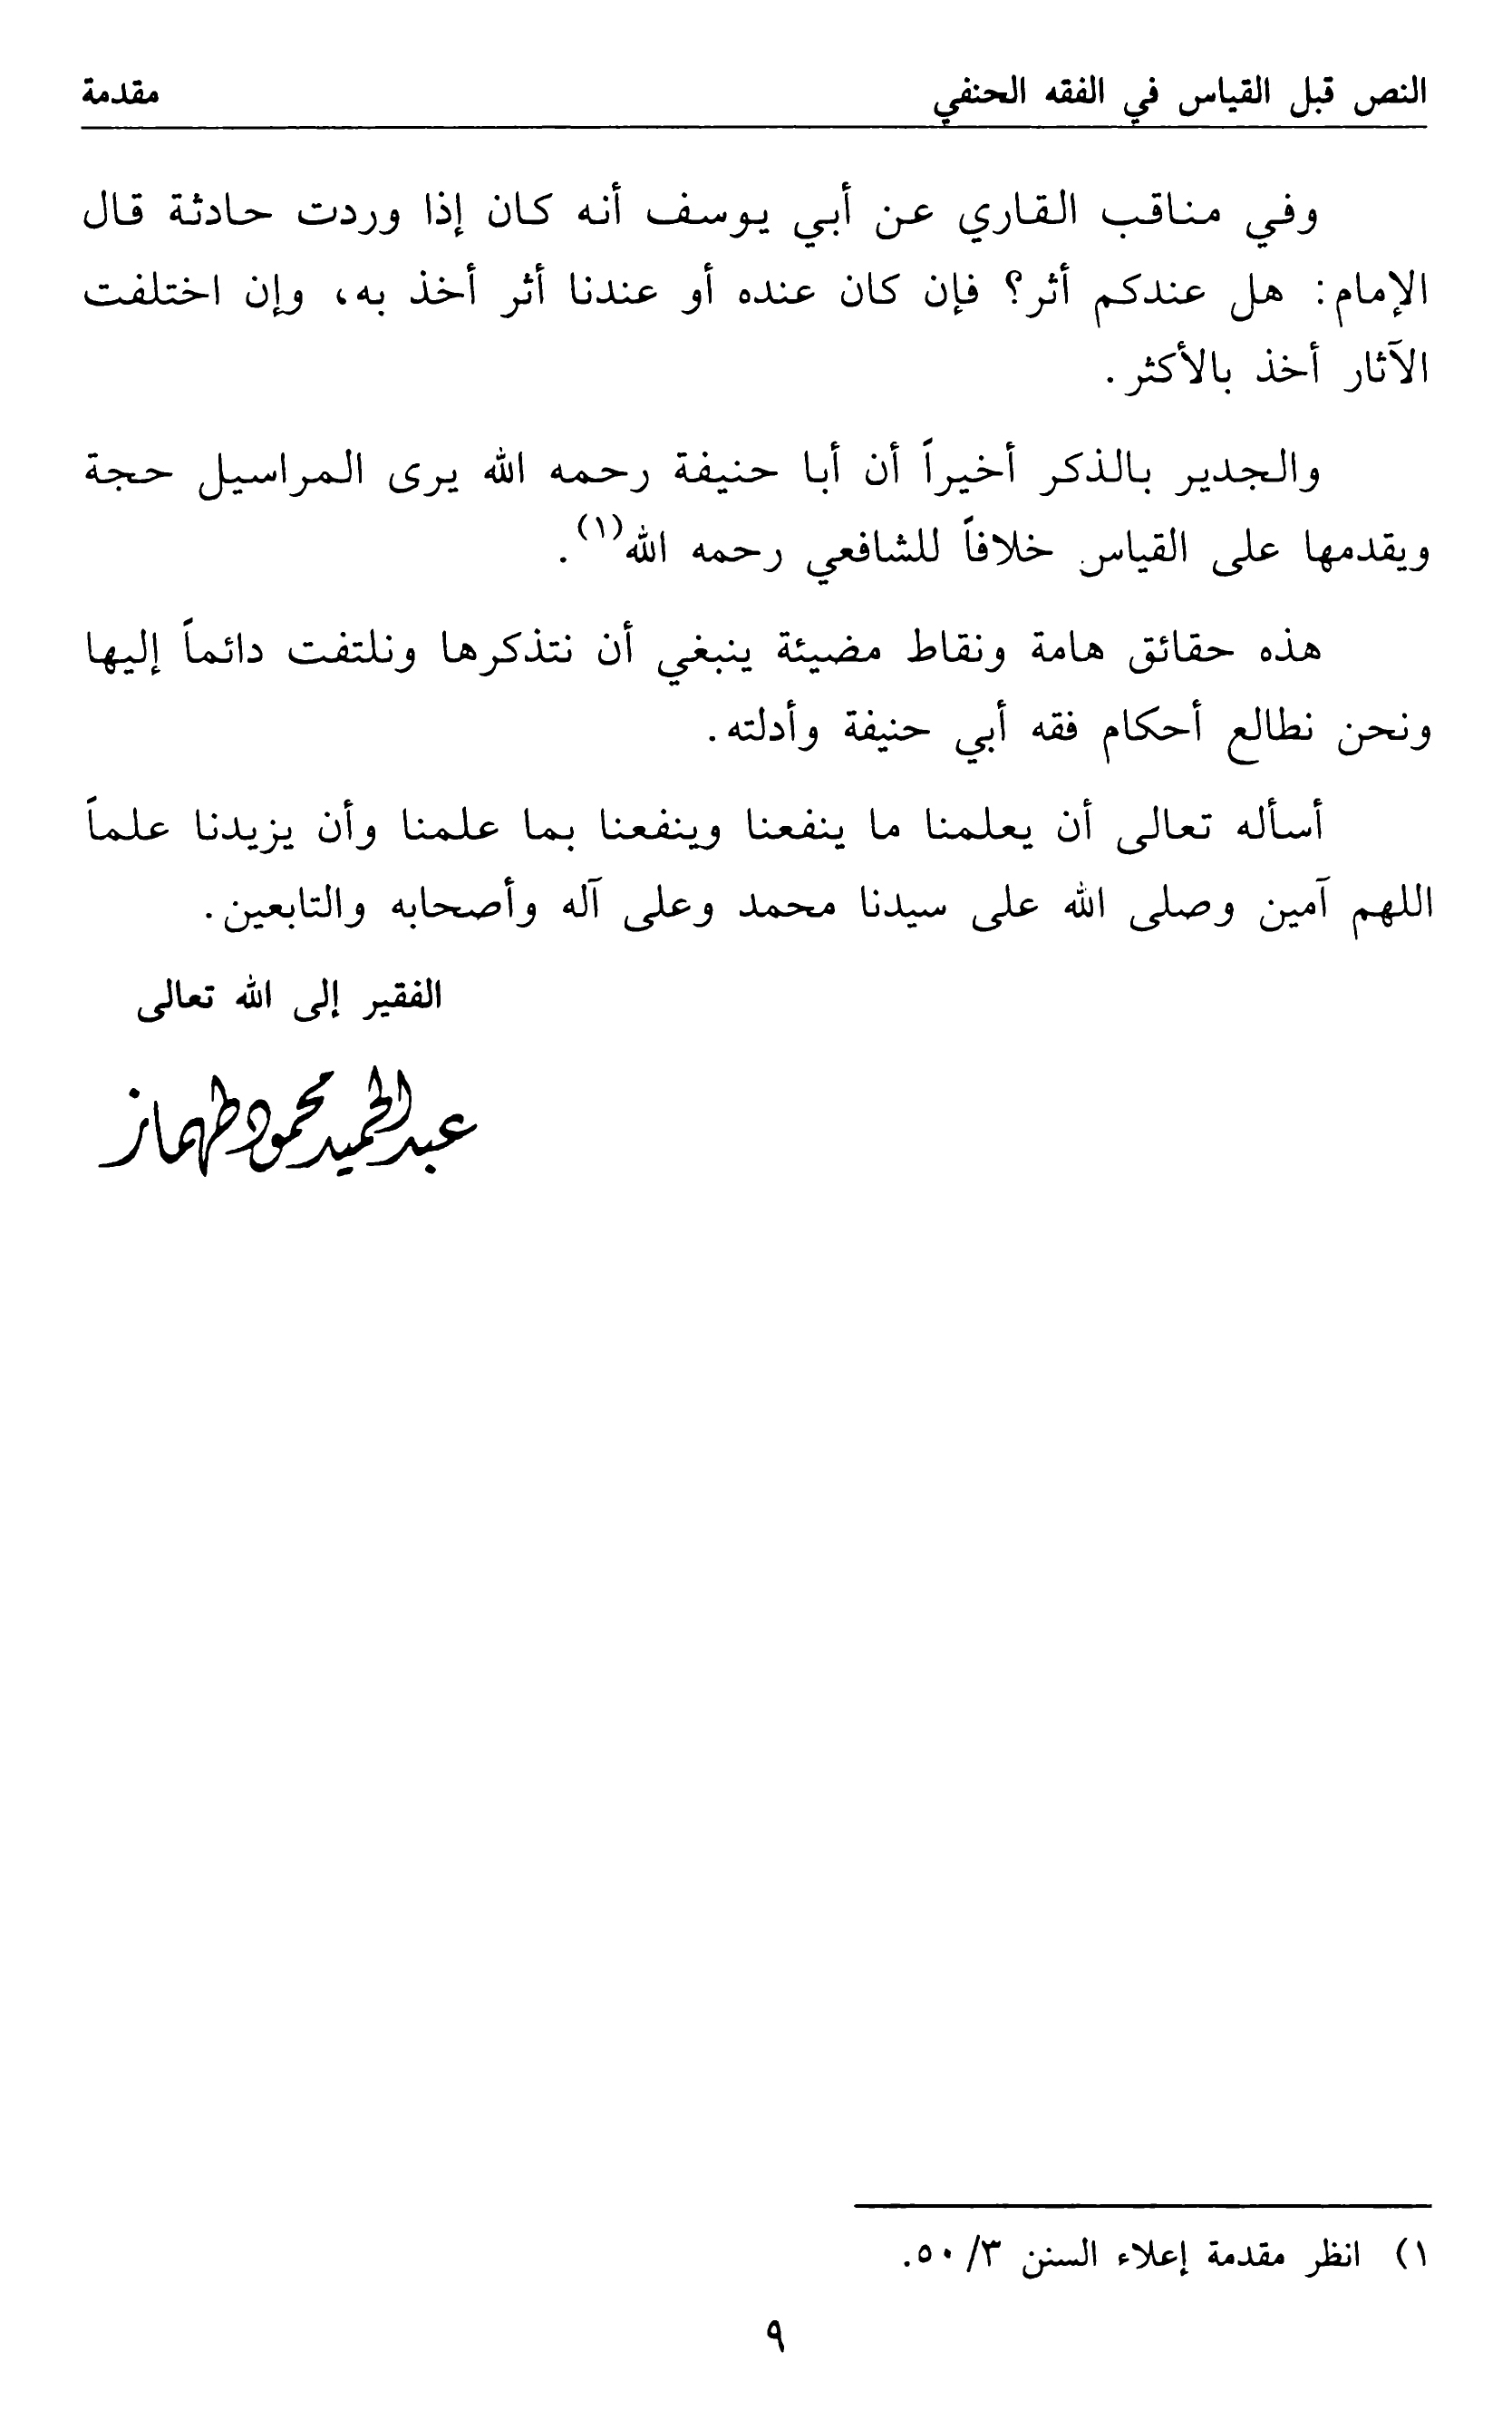 النص قبل القياس في الفقه الحنفي مقدمة
وفي مناقب القاري عن أبي يوسف أنه كان إذا وردت حادثة قال
الإمام: هل عندكم أثر؟ فإن كان عنده أو عندنا أثر أخذ به، وإن اختلفت
الآثار أخذ بالأكثر.
والجدير بالذكر أخيراً أن أبا حنيفة رحمه الله يرى المراسيل حجة
ويقدمها على القياس خلافاً للشافعي رحمه الله(١).
هذه حقائق هامة ونقاط مضيئة ينبغي أن نتذكرها ونلتفت دائماً إليها
ونحن نطالع أحكام فقه أبي حنيفة وأدلته.
أسأله تعالى أن يعلمنا ما ينفعنا وينفعنا بما علمنا وأن يزيدنا علماً
اللهم آمين وصلى الله على سيدنا محمد وعلى آله وأصحابه والتابعين.
الفقير إلى الله تعالى
عبد الحميد محمود طهماز
١) انظر مقدمة إعلاء السنن ٣/٥٠.
٩